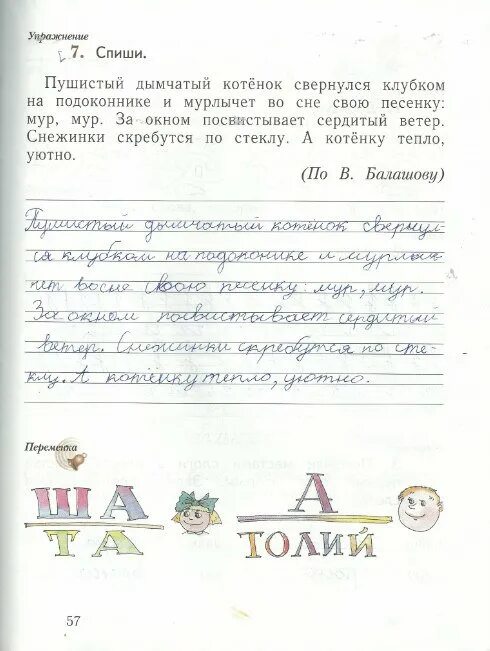 Упражнение
7. Спиши.
Пушистый дымчатый котёнок свернулся клубком
на подоконнике и мурлычет во сне свою песенку:
мур, мур. За окном посвистывает сердитый ветер.
Снежинки скребутся по стеклу. А котёнку тепло,
уютно.
(По В. Балашову)
Пушистый дымчатый котёнок свернул-
ся клубком на подоконике и мурлы-
чет во сне свою песенку: мур, мур.
За окном посвистывает сердитый
ветер. Снежинки скребутся по сте-
клу. А котёнку тепло, уютно.
Переменка
ША А
ТА ТОЛИЙ
57